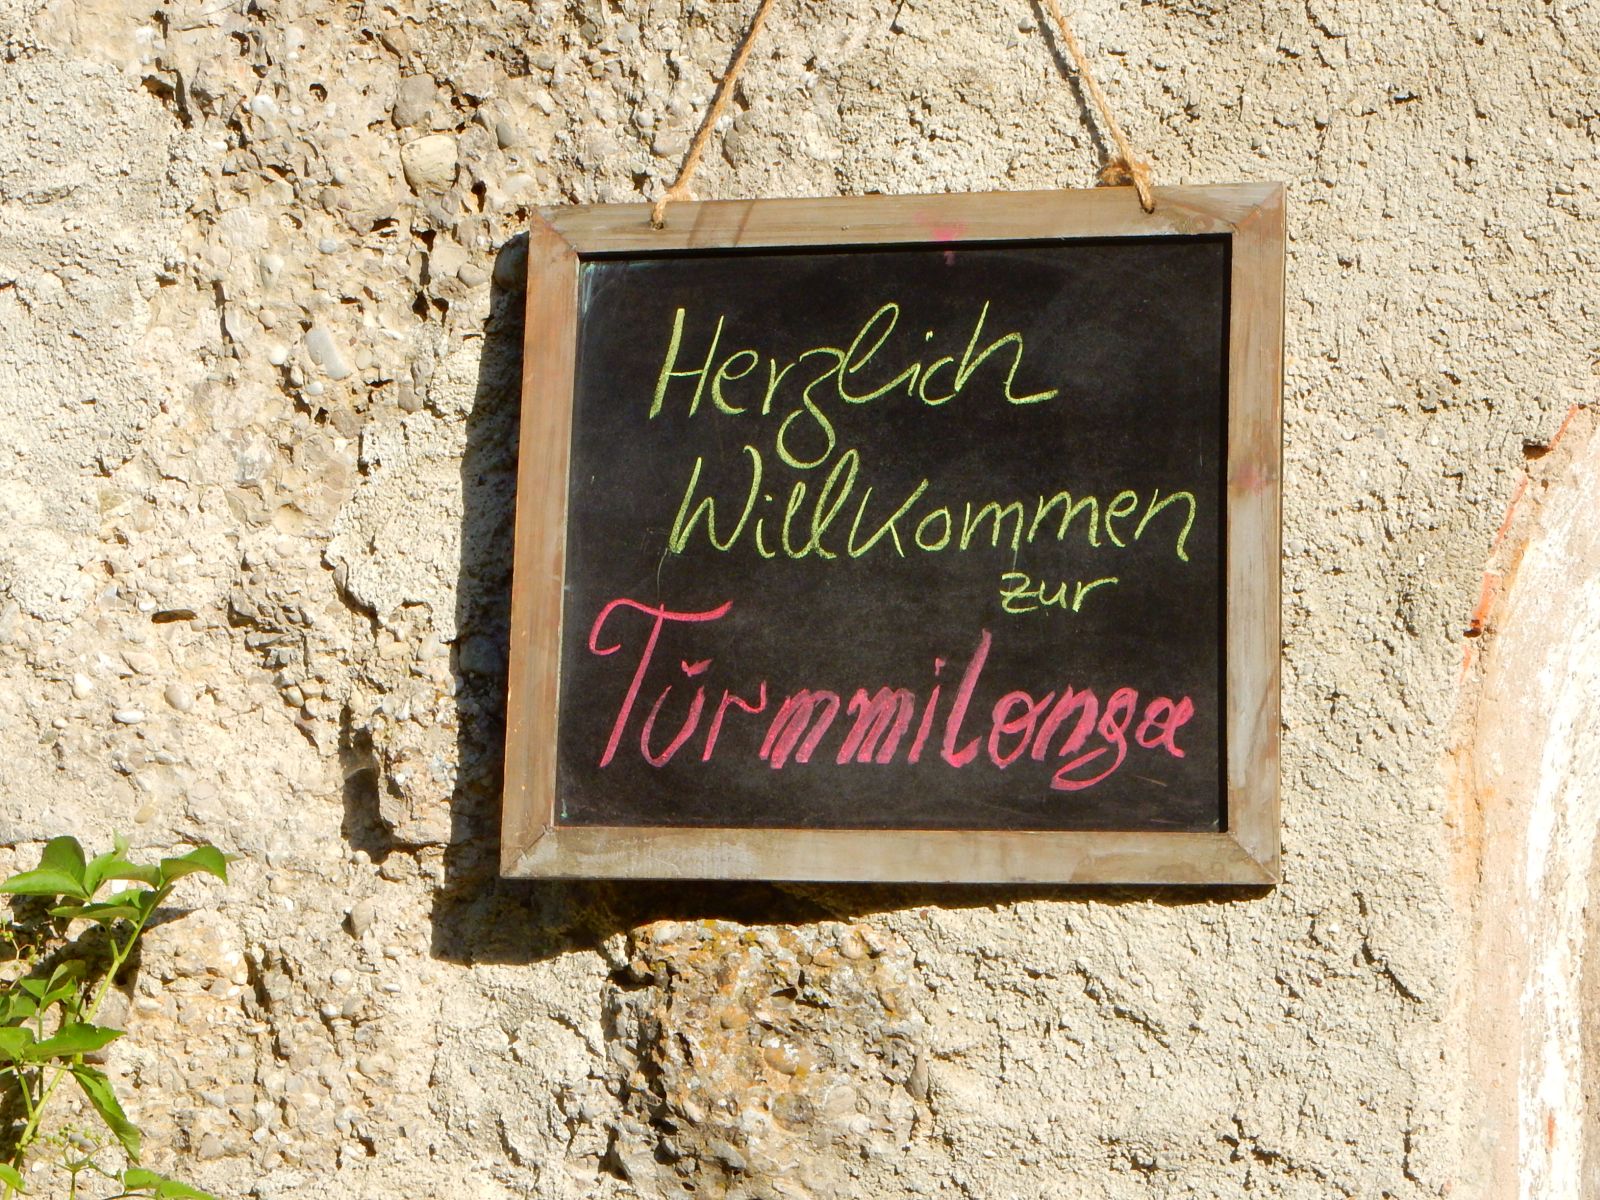 Herzlich
Willkommen
zur
Türmmilonga